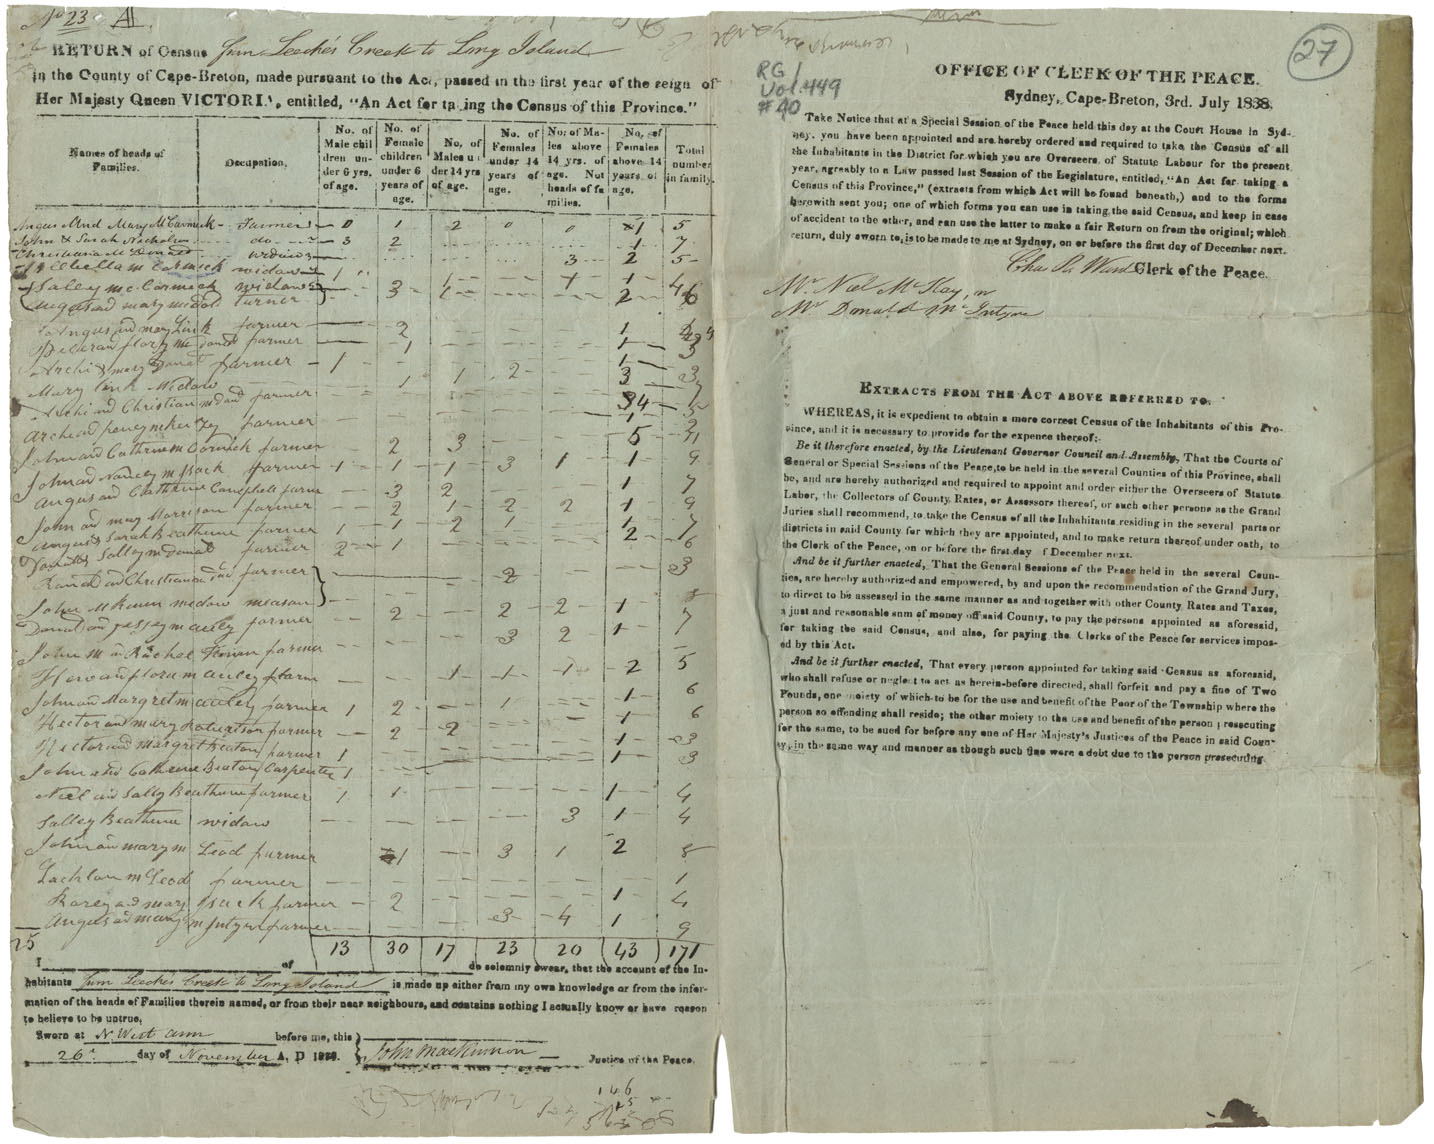 No 23 A
RETURN of Census from Leeche's Creek to Long Island
in the County of Cape-Breton, made pursuant to the Act, passed in the first year of the reign of
Her Majesty Queen VICTORIA, entitled, "An Act for taking the Census of this Province."
Names of heads of Families. Occupation. No. of Male children under 6 yrs. of age. No. of Female children under 6 years of age. No. of Males under 14 yrs of age. No. of Females under 14 years of age. No; of Males above 14 yrs. of age. Not heads of families. No. of Females above 14 years of age. Total number in family.
Angus and Mary McCormick Farmer 0 1 2 0 0 1 5
John & Sarah Nicholson do 3 2 1 7
Christiana widow 3 2 5
McCormick widow 1
Salley mcCormick widow 1 1 1 4
Angus and mary mcdol Turner 3 1 2 6
Angus and mary Link farmer 2 1
and flory mcdonald farmer 1 1 3
Archi & mary Donat farmer 1 1 3
Mary Link Widow 1 1 2 3 7
Archi and Christian mcdond farmer
Archi and penney mckenzey farmer 5
John and Cathrine mcCormick farmer 2 3
John and Nancy mcIsack farmer 1 1 1 3 1 1 9
Angus and Cathrine Campbell farmer 3 2 1 7
John and mary Morrison farmer 2 1 2 2 1 9
Angus & Sarah Beathune farmer 1 1 2 1 1 7
Salley mcDonal farmer 2 1 2 6
Ranald and Christian farmer 2 3
John mason
Donal an pessey mcauley farmer 2 2 2 1 7
John Rachel farmer 3 2 1
and flora mcauley farm 1 1 1 2 5
John an Margret mcauley farmer 1 2 1 1 6
Hector and mary Robertson farmer 2 2 1 6
Hector and margret Beaton farmer 1 1 3
John and Cathrine Beaton Carpenter 1 1 3
Neil and Sally Beathune farmer 1 1 1 4
Salley Beathune widow 3 1 4
John an mary mcLeod farmer 1 3 1 2 8
Lachlan mcLeod farmer 1
Rorey and mary Isack farmer 2 1 4
Angus ad mary mcIntyre farmer 3 4 1 9
25 13 30 17 23 20 43 171
I of do solemnly swear, that the account of the In-
habitants from Leeche's Creek to Long Island is made up either from my own knowledge or from the infor-
mation of the heads of Families therein named, or from their near neighbours, and contains nothing I actually know or have reason
to believe to be untrue.
Sworn at N. West arm before me, this
26th day of November A. D 1838. John MacKinnon Justice of the Peace.
146
27
RG 1
Vol. 449
#40
OFFICE OF CLERK OF THE PEACE.
Sydney, Cape-Breton, 3rd. July 1838.
Take Notice that at a Special Session of the Peace held this day at the Court House in Syd-
ney, you have been appointed and are hereby ordered and required to take the Census of all
the Inhabitants in the District for which you are Overseers of Statute Labour for the present
year, agreably to a Law passed last Session of the Legislature, entitled, "An Act for taking a
Census of this Province," (extracts from which Act will be found beneath,) and to the forms
herewith sent you; one of which forms you can use in taking the said Census, and keep in case
of accident to the other, and can use the latter to make a fair Return on from the original; which
return, duly sworn to, is to be made to me at Sydney, on or before the first day of December next.
Chas R. Ward Clerk of the Peace.
Mr Neil McKay, or
Mr Donald McIntyre
EXTRACTS FROM THE ACT ABOVE REFERRED TO.
WHEREAS, it is expedient to obtain a more correct Census of the Inhabitants of this Pro-
vince, and it is necessary to provide for the expence thereof:-
Be it therefore enacted, by the Lieutenant Governor Council and Assembly, That the Courts of
General or Special Sessions of the Peace, to be held in the several Counties of this Province, shall
be, and are hereby authorized and required to appoint and order either the Overseers of Statute
Labor, the Collectors of County Rates, or Assessors thereof, or such other persons as the Grand
Juries shall recommend, to take the Census of all the Inhabitants residing in the several parts or
districts in said County for which they are appointed, and to make return thereof under oath, to
the Clerk of the Peace, on or before the first day of December next.
And be it further enacted, That the General Sessions of the Peace held in the several Coun-
ties, are hereby authorized and empowered, by and upon the recommendation of the Grand Jury,
to direct to be assessed in the same manner as and together with other County Rates and Taxes,
a just and reasonable sum of money off said County, to pay the persons appointed as aforesaid,
for taking the said Census, and also, for paying the Clerks of the Peace for services impos-
ed by this Act.
And be it further enacted, That every person appointed for taking said Census as aforesaid,
who shall refuse or neglect to act as herein-before directed, shall forfeit and pay a fine of Two
Pounds, one moiety of which to be for the use and benefit of the Poor of the Township where the
person so offending shall reside; the other moiety to the use and benefit of the person prosecuting
for the same, to be sued for before any one of Her Majesty's Justices of the Peace in said Coun-
ty, in the same way and manner as though such fine were a debt due to the person prosecuting.